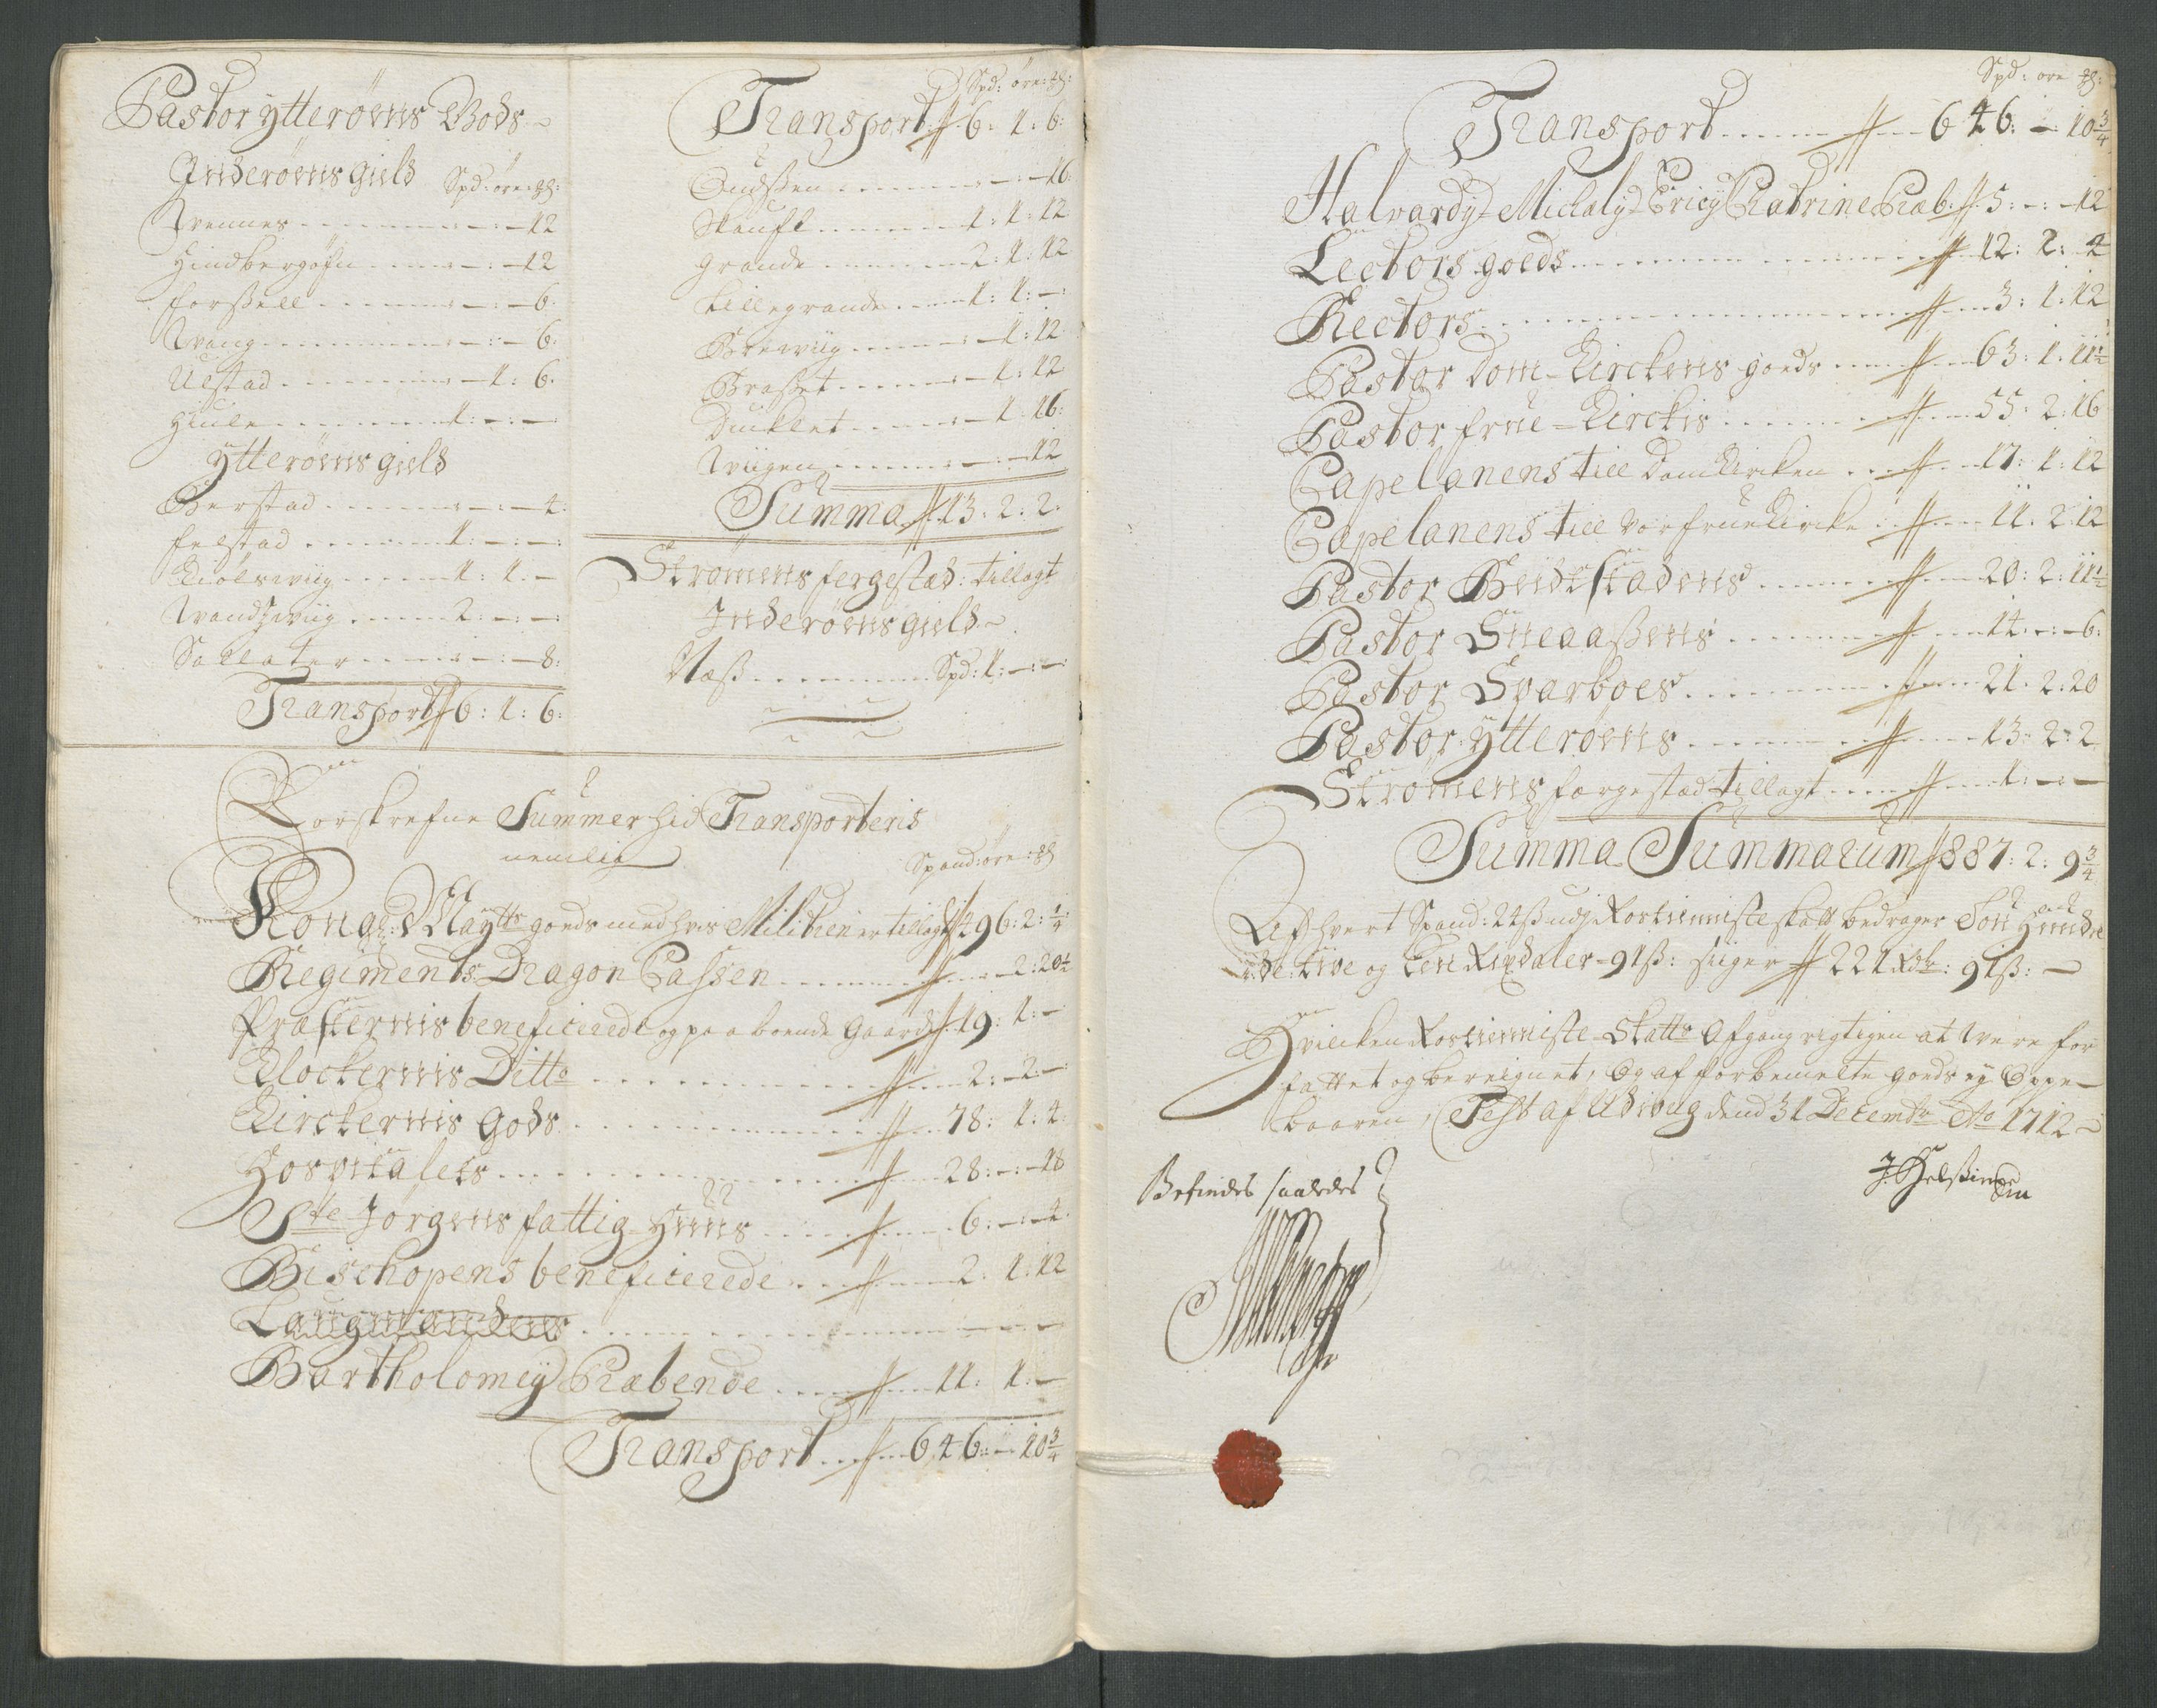 Pastor ytterøens Gods
Inderøens gield Spd: øre: ℔:
Wennes - : - 12
Hindbergøfn - : - 12
forssell - : - 6.
Wang - : - 6.
Ulstad - 1 : 6.
Hiule 1 : - : -
ytterøens gield
Berstad - : - 4.
felstad 1 : - : -
Kiølswiig 1 : 1 : -
Wandswiig 2 : - : -
Sallater - : - 8:
Transport 6 : 1 : 6:
Spd: øre: ℔:
Transport 6 : 1 : 6:
- : - 16
Skaufl 1 : 1 : 12
grande 2 : 1 : 12
Lillegrande 1 : 1 : -
Brewiig - 1 : 12
Brasset - 1 : 12
Duklet - 1 : 16:
Wiigen - : - 12
Summa 13 : 2 : 2.
Strømens fergestæd: tillagt
Inderøens gield
Næss Spd: 1 : - : -
Forskrefne Summer hid Transporteris
nemlig Spand: øre: ℔
Kongl: Maytts goeds med hvis Militien er tillagt 296 : 2 : 1/4
Regiments Dragon Cassen - 2 : 20 1/2
Præsternis beneficerede og paaboende Gaarde 119 : 1 : -
Klockernis Ditto 2 : 2 : -
Kirckernis Gods 78 : 1 : 4:
Hospitalets 28 : - : 18
Ste Jørgens fattig Huus 6 : - : 2.
Bischopens beneficerede 2 : 1 : 12
Laugmandens
Bartholomey Præbende 11 : 1 : -
Transport 646 : - 10 3/4
Spd: øre ℔:
Transport 646 : - : 10 3/4
Halvardy - Michaly - Ericy Chatrine Præb: 5 : - : - 12
Lectors goeds 12 : 2 : 4
Rectors 3 : 1 : 12
Pastor Dom - Kirckens goeds 63 : 1 : 11 1/2
Pastor frue - Kirckis 55 : 2 : 16
Capelanens till Domkircken 17 : 1 : 12
Capelanens till Vor frue Kircke 11 : 2 : 12
Pastor Beidtstadens 20 : 2 : 11 1/2
Pastor Sneaasens 14 : - : - 6:
Pastor Sparboes 21 : 2 : 20
Pastor ytterøens 13 : 2 : 2
Strømens færgestæd tillagt 1 : - : -
Summa Summarum 887 : 2 : 9 3/4
Af hvert Spand: 24 ß udj Rostienniste skatt bedrager Toe Hundre
de: tive og Een Rixdaler - 91 ß: siiger 221 Rdr: 91 ß: -
Hvilcken Rostienniste - Skatts Afgang rigtigen at were for
fattet og bereignet, og af forbemelte goeds ej Oppe-
baaren, Test af Udivug dend 31 Decembr Ao 1712
Befindes saaledes